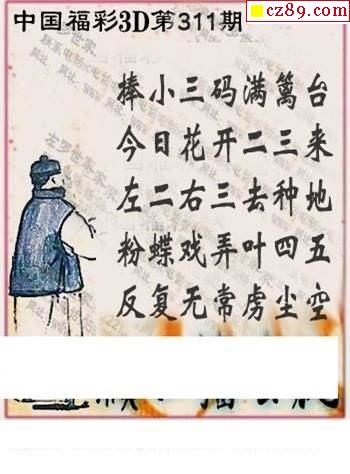 cz89.com
中国福彩3D第311期
捧小三码满篱台
今日花开二三来
左二右三去种地
粉蝶戏弄叶四五
反复无常虏尘空